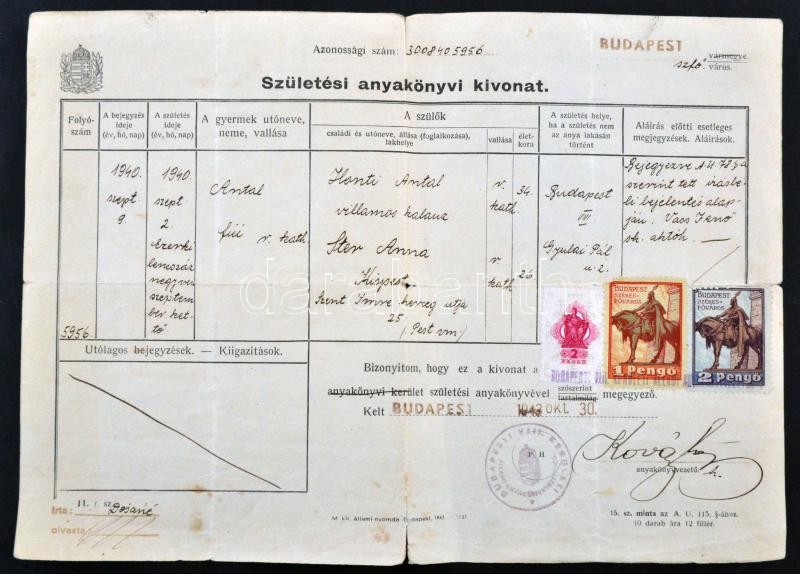 Azonossági szám: 3008405956
BUDAPEST
vármegye.
szfő város.
Születési anyakönyvi kivonat.
Folyó-
szám
A bejegyzés
ideje
(év, hó, nap)
A születés
ideje
(év, hó, nap)
A gyermek utóneve,
neme, vallása
A szülők
családi és utóneve, állása (foglalkozása),
lakhelye
vallása
élet-
kora
A születés helye,
ha a születés nem
az anya lakásán
történt
Aláírás előtti esetleges
megjegyzések. Aláírások.
5956.
1940.
szept.
9.
1940.
szept
2.
Ezerki
lencszáz
negyven
szeptem
ber ket-
tő
Antal
fiú r. kath.
Honti Antal
villamos kalauz
Ster Anna
Kispest,
Szent Imre herceg utja
25
(Pest vm.)
r.
kath.
34.
r
kath.
26.
Budapest
VIII.
Gyulai Pál
u 2.
Bejegyezve A.U. 78.§-a
szerint tett írásbe-
li bejelentés alap-
ján. Vass Jenő
sk. aktóh.
Utólagos bejegyzések. — Kiigazítások.
2
PENGŐ
BUDAPEST
SZÉKES-
FŐVÁROS
1 Pengő
BUDAPEST
SZÉKES-
FŐVÁROS
2 Pengő
Bizonyítom, hogy ez a kivonat a
BUDAPESTI VIII. KERÜLETI
anyakönyvi kerület születési anyakönyvével szószerint
tartalmilag megegyező.
Kelt BUDAPEST 1943 OKT. 30.
BUDAPESTI VIII. KERÜLETI
P. H.
anyakönyvvezető.
Írta: Dosáné
olvasta:
M. kir. állami nyomda, Budapest, 1942.
15. sz. minta az A. U. 115. §-ához.
10 darab ára 12 fillér.
darabanth.com